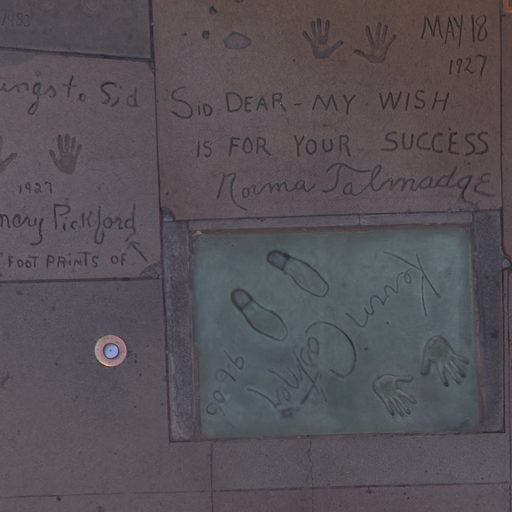 1483
ings to Sid
1927
mary Pickford
FOOT PRINTS OF
MAY 18
1927
SID DEAR - MY WISH
IS FOR YOUR SUCCESS
Norma Talmadge
Kevin
Costner
9606